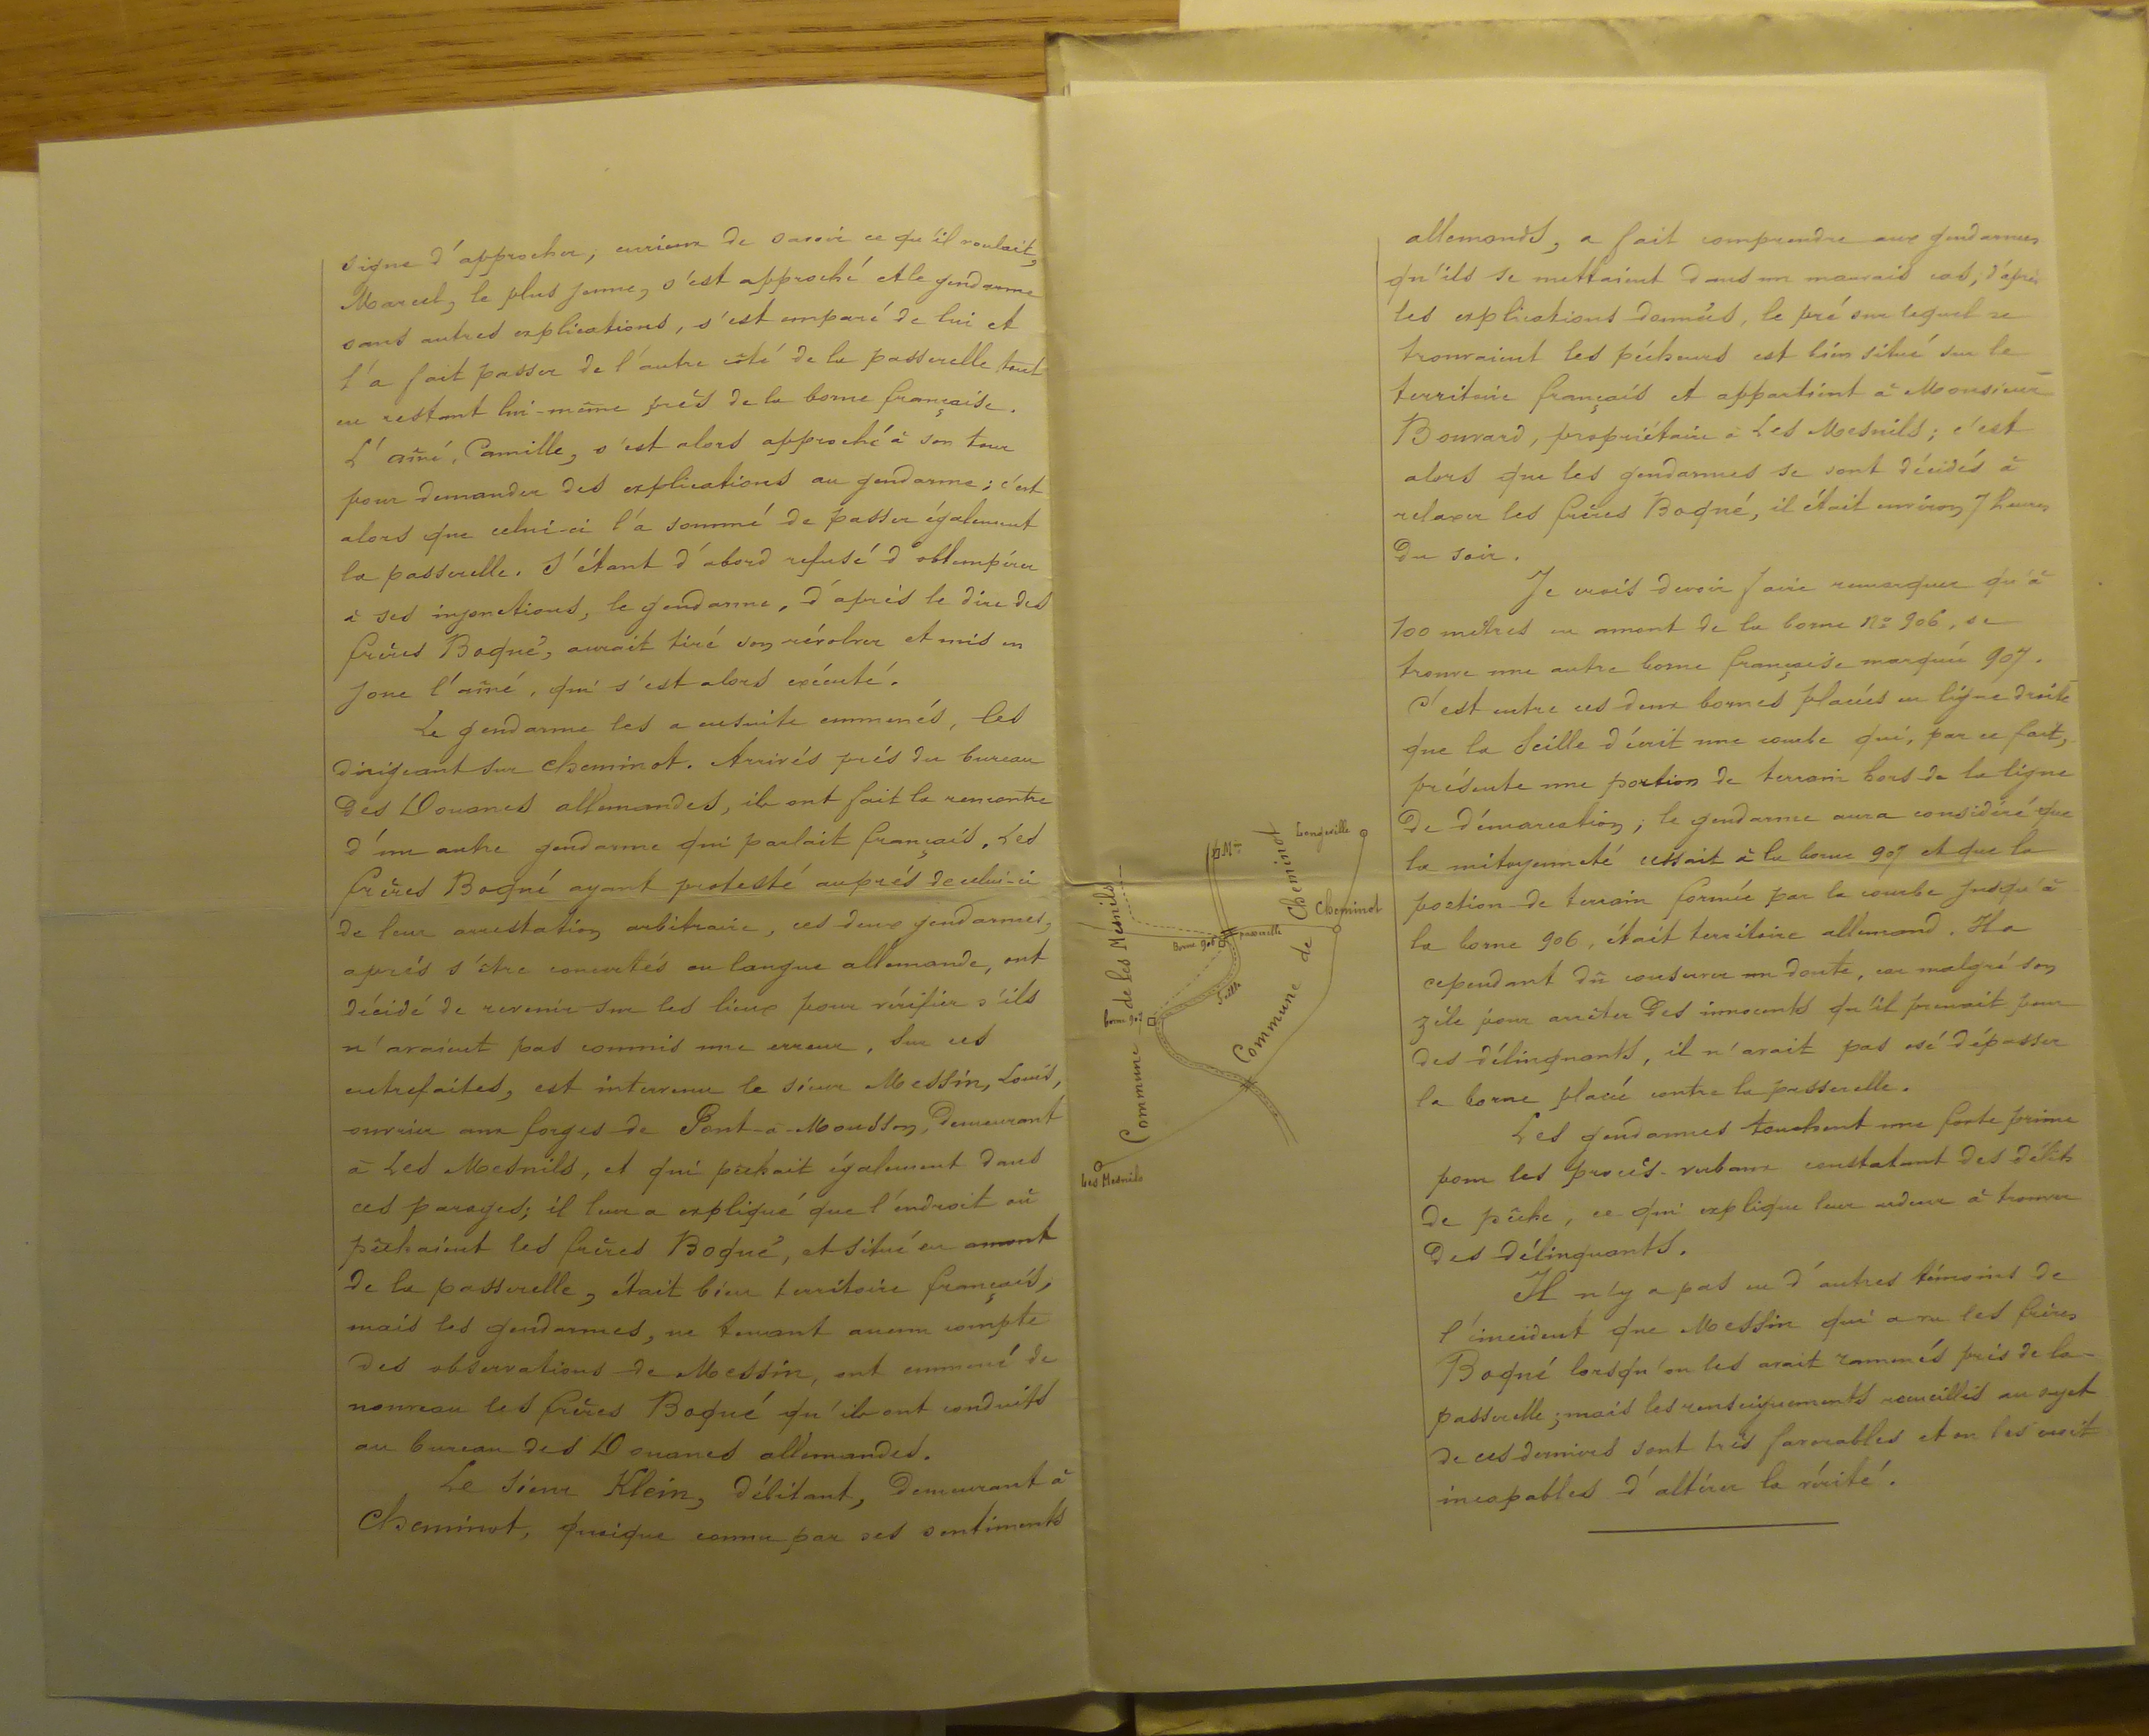 signe d'approcher, curieux de savoir ce qu'il voulait,
Marcel, le plus jeune, s'est approché et le gendarme
sans autres explications, s'est emparé de lui et
l'a fait passer de l'autre côté de la passerelle tout
en restant lui-même près de la borne française.
L'aîné, Camille, s'est alors approché à son tour
pour demander des explications au gendarme; c'est
alors que celui-ci l'a sommé de passer également
la passerelle. S'étant d'abord refusé d'obtempérer
à ses injonctions, le gendarme, d'après le dire des
frères Bogné, aurait tiré son révolver et mis en
joue l'aîné, qui s'est alors exécuté.
Le gendarme les a ensuite emmenés, les
dirigeant sur Cheminot. Arrivés près du bureau
des Douanes allemandes, ils ont fait la rencontre
d'un autre gendarme qui parlait français. Les
frères Bogné ayant protesté auprès de celui-ci
de leur arrestation arbitraire, ces deux gendarmes,
après s'être concertés en langue allemande, ont
décidé de revenir sur les lieux pour vérifier s'ils
n'avaient pas commis une erreur. Sur ces
entrefaites, est intervenu le sieur Messin, Louis,
ouvrier aux forges de Pont-à-Mousson, demeurant
à Les Mesnils, et qui pêchait également dans
ces parages; il leur a expliqué que l'endroit où
pêchaient les frères Bogné, et situé en amont
de la passerelle, était bien territoire français,
mais les gendarmes, ne tenant aucun compte
des observations de Messin, ont emmené de
nouveau les frères Bogné qu'ils ont conduits
au bureau des Douanes allemandes.
Le sieur Klein, débitant, demeurant à
Cheminot, quoique connu par ses sentiments
Longeville
Min
Commune de Les Mesnils
Commune de Cheminot
Cheminot
passerelle
Borne 906
Seille
borne 907
Les Mesnils
allemands, a fait comprendre aux gendarmes
qu'ils se mettaient dans un mauvais cas, d'après
les explications données, le pré sur lequel se
trouvaient les pêcheurs est bien situé sur le
territoire français et appartient à Monsieur
Bouvard, propriétaire à Les Mesnils; c'est
alors que les gendarmes se sont décidés à
relaxer les frères Bogné, il était environ 7 heures
du soir.
Je crois devoir faire remarquer qu'à
100 mètres en amont de la borne No 906, se
trouve une autre borne française marquée 907.
C'est entre ces deux bornes placées en ligne droite
que la Seille décrit une courbe qui, par ce fait,
présente une portion de terrain hors de la ligne
de démarcation; le gendarme aura considéré que
la mitoyenneté cessait à la borne 907 et que la
portion de terrain formée par la courbe jusqu'à
la borne 906, était territoire allemand. Il a
cependant dû conserver un doute, car malgré son
zèle pour arrêter des innocents qu'il prenait pour
des délinquants, il n'avait pas osé dépasser
la borne placée contre la passerelle.
Les gendarmes touchent une forte prime
pour les procès-verbaux constatant des délits
de pêche, ce qui explique leur ardeur à trouver
des délinquants.
Il n'y a pas eu d'autres témoins de
l'incident que Messin qui a vu les frères
Bogné lorsqu'on les avait ramenés près de la
passerelle; mais les renseignements recueillis au sujet
de ces derniers sont très favorables et on les croit
incapables d'altérer la vérité.